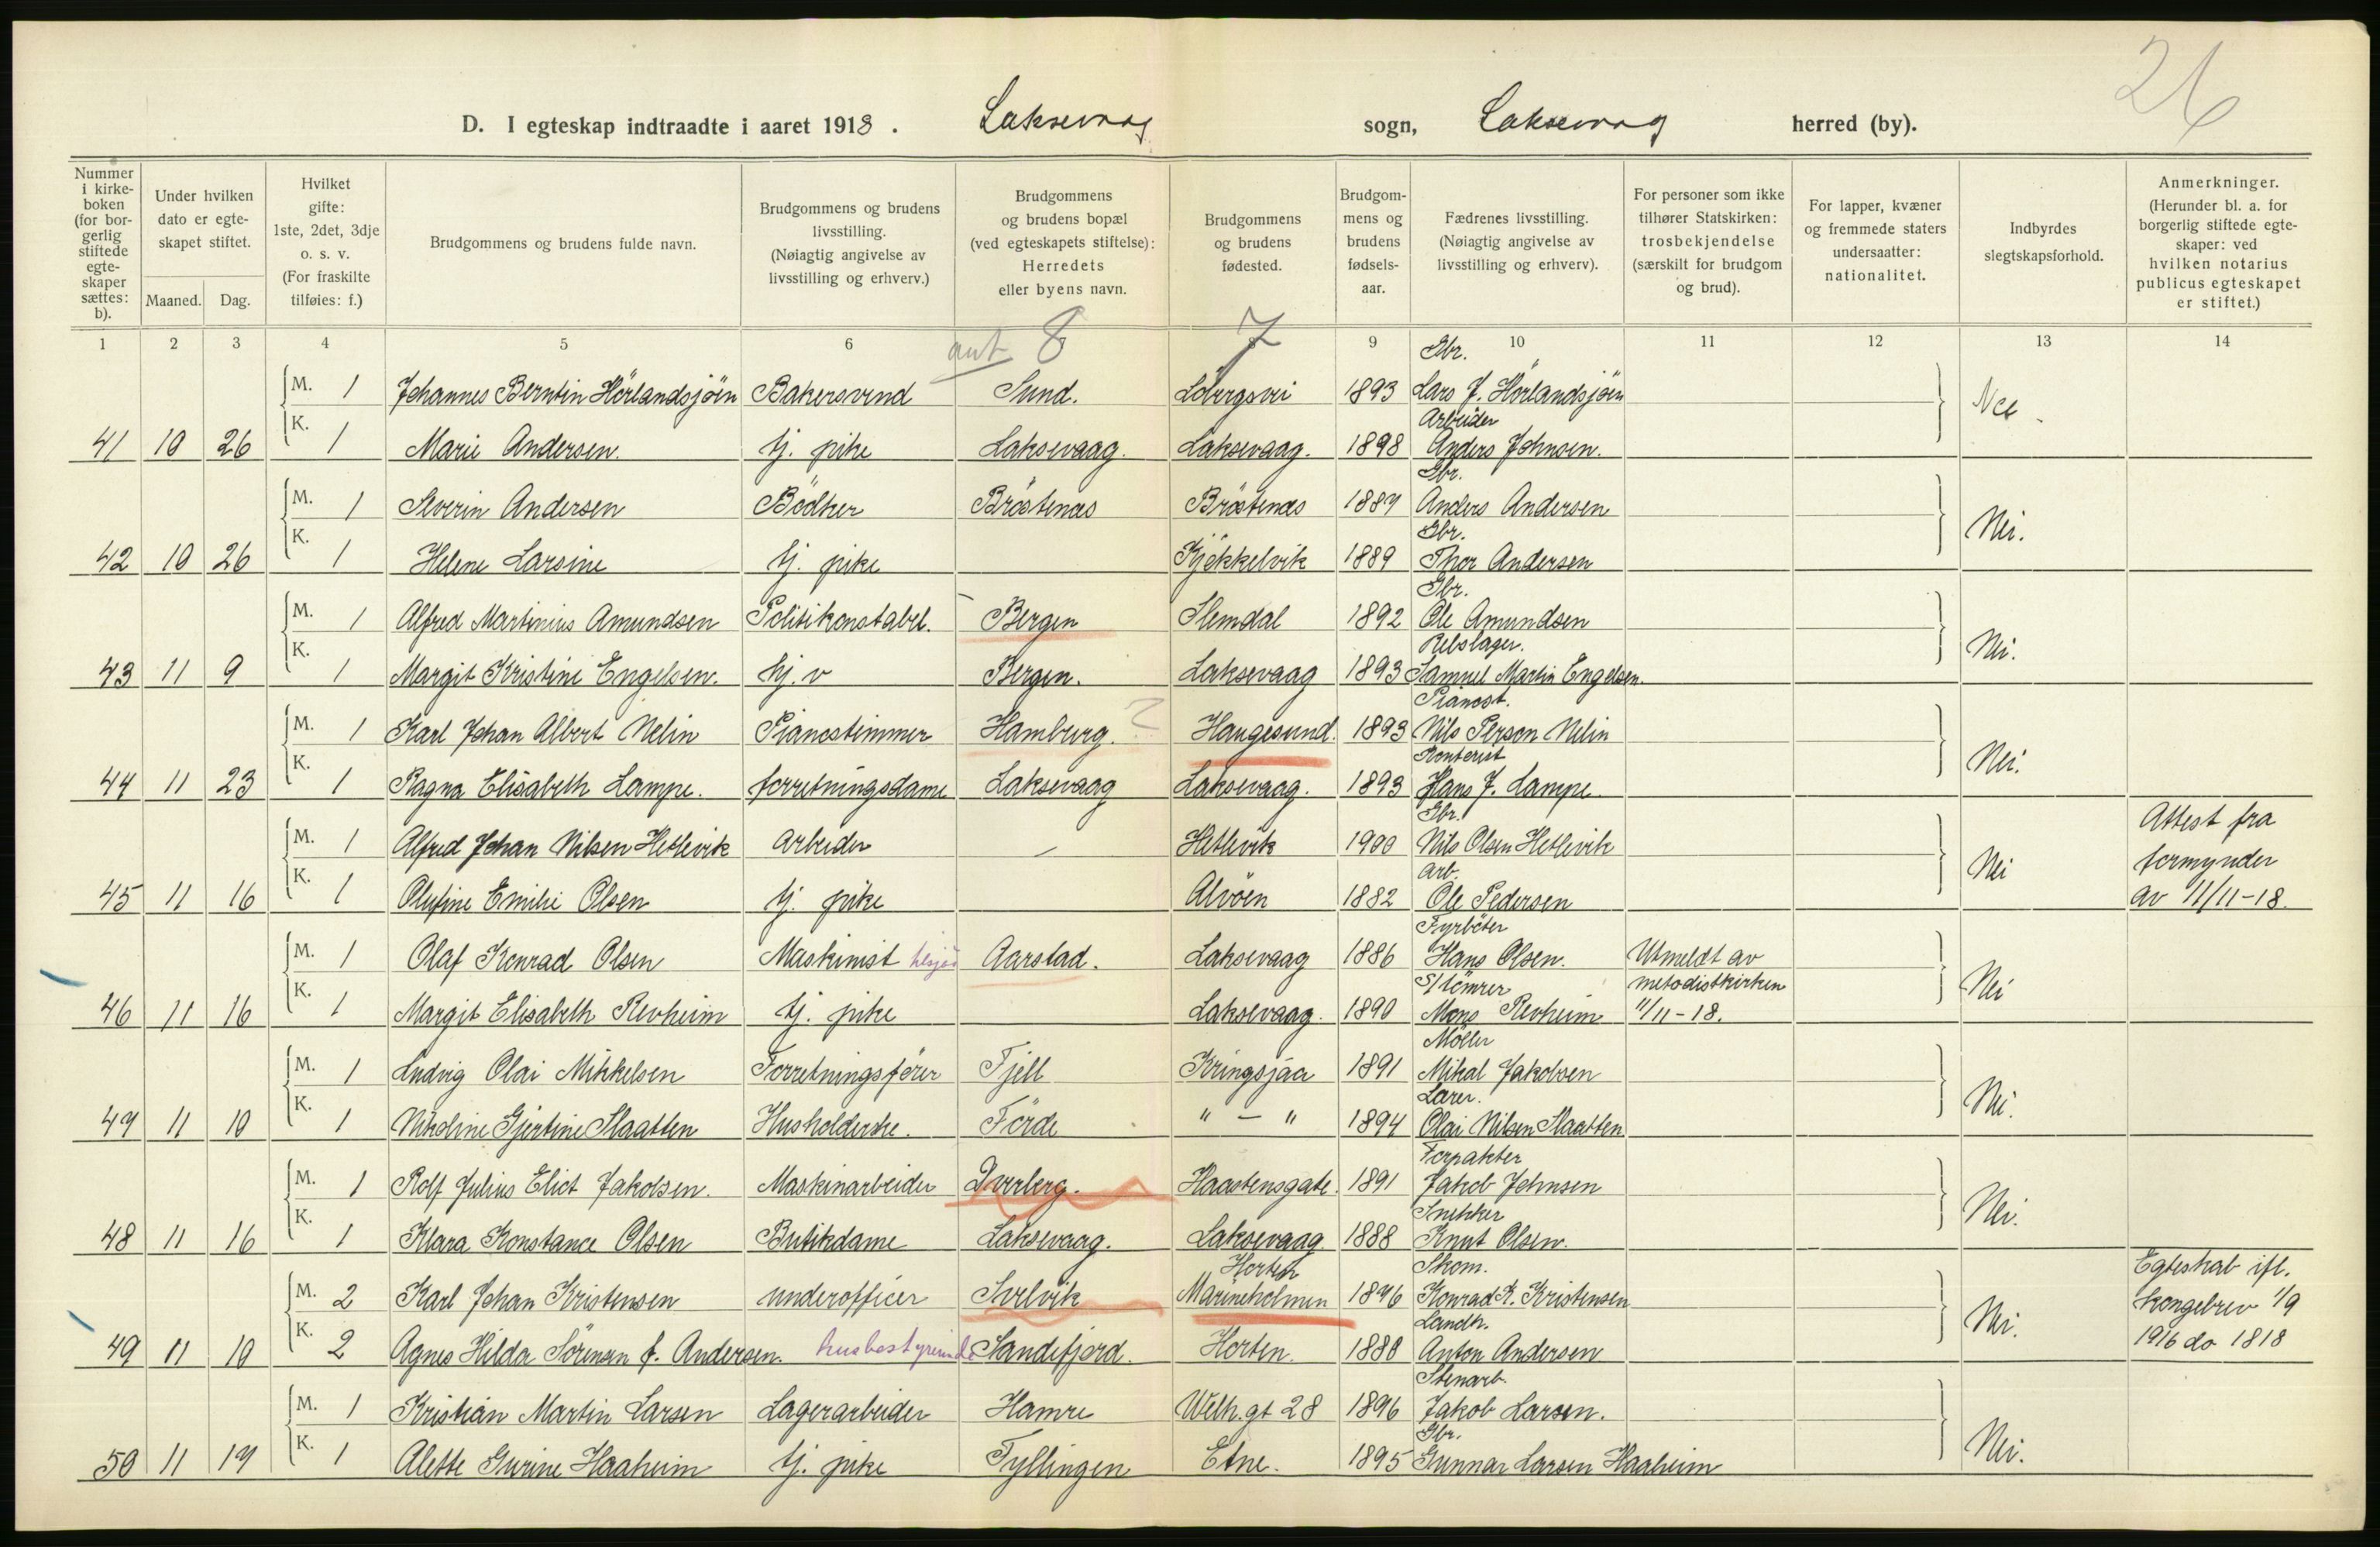 26
D. I egteskap indtraadte i aaret 1918. Laksevaag sogn, Laksevaag herred (by).
Nummer i kirkeboken (for borgerlig stiftede egteskaper sættes: b).
Under hvilken dato er egteskapet stiftet.
Maaned. Dag.
Hvilket gifte: 1ste, 2det, 3dje o. s. v. (For fraskilte tilføies: f.)
Brudgommens og brudens fulde navn.
Brudgommens og brudens livsstilling. (Nøiagtig angivelse av livsstilling og erhverv.)
Brudgommens og brudens bopæl (ved egteskapets stiftelse): Herredets eller byens navn.
Brudgommens og brudens fødested.
Brudgommens og brudens fødselsaar.
Fædrenes livsstilling. (Nøiagtig angivelse av livsstilling og erhverv).
For personer som ikke tilhører Statskirken: trosbekjendelse (særskilt for brudgom og brud).
For lapper, kvæner og fremmede staters undersaatter: nationalitet.
Indbyrdes slegtskapsforhold.
Anmerkninger. (Herunder bl. a. for borgerlig stiftede egteskaper: ved hvilken notarius publicus egteskapet er stiftet.)
1 2 3 4 5 6 ant 8 7 9 10 11 12 13 14
Gbr.
M. 1 Johannes Berntin Hörlandsjöen Bakersvend Sund. 1893 Lars J. Hörlandsjöen Nei.
Arbeider
41 10 26 K. 1 Marie Andersen. tj. pike Laksevaag. Laksevaag. 1898 Anders Johnsen.
Gbr.
M. 1 Severin Andersen Bödker Bröstenes Bröstenes 1887 Anders Andersen Nei.
Gbr.
42 10 26 K. 1 Helene Larsine tj. pike Kjökkelvik 1889 Thor Andersen
Gbr.
M. 1 Alfred Martinius Amundsen Politikonstabel. Bergen Slemdal 1892 Ole Amundsen Nei.
Rebslager.
43 11 9 K. 1 Margit Kristine Engelsen. hj. v Bergen. Laksevaag 1893 Samuel Martin Engelsen.
Pianost.
M. 1 Karl Johan Albert Nelin Pianostimmer Hamburg. ? Haugesund. 1893 Nils Person Nelin Nei.
Kontorist
44 11 23 K. 1 Ragna Elisabeth Lampe. forretningsdame Laksevaag Laksevaag. 1893 Hans J. Lampe.
Gbr.
M. 1 Alfred Johan Nilsen Hetlevik arbeider — Hetlevik 1900 Nils Olsen Hetlevik Nei Attest fra formynder av 11/11-18.
Arb.
45 11 16 K. 1 Olufine Emilie Olsen tj. pike Alvöen 1882 Ole Pedersen
Fyrböter
M. 1 Olaf Konrad Olsen Maskinist Aarstad. Laksevaag 1886 Hans Olsen. Utmeldt av metodistkirken 11/11-18. Nei
S/tömrer
46 11 16 K. 1 Margit Elisabeth Revheim tj. pike Laksevaag. 1890 Mons Revheim
Möller
M. 1 Ludvig Olai Mikkelsen Forretningsförer Fjell Kringsjaa 1891 Mikal Jakobsen Nei.
Lærer.
47 11 10 K. 1 Nikoline Gjertine Slaatten Husholderske. Förde " — " 1894 Olai Nilsen Slaatten
Forpakter
M. 1 Rolf Julius Eliot Jakobsen. Maskinarbeider Dverberg. Haastensgate. 1891 Jakob Johnsen Nei.
Snekker
48 11 16 K. 1 Klara Konstance Olsen Butikdame Laksevaag. Laksevaag. 1888 Knut Olsen.
Horten Skom.
M. 2 Karl Johan Kristensen underofficer Svelvik Marineholmen 1876 Konrad K. Kristensen Nei. Egteskab ifl. kongebrev 1/9 1916 do 1818
Landh.
49 11 10 K. 2 Agnes Hilda Sörensen f. Andersen. husbestyrerinde Sandefjord. Horten. 1880 Anton Andersen
Stenarb.
M. 1 Kristian Martin Larsen Lagerarbeider Hamre Welh.gt 28 1896 Jakob Larsen. Nei.
Gbr.
50 11 17 K. 1 Alette Gurine Haaheim tj. pike Fyllingen Etne. 1895 Gunnar Larsen Haaheim